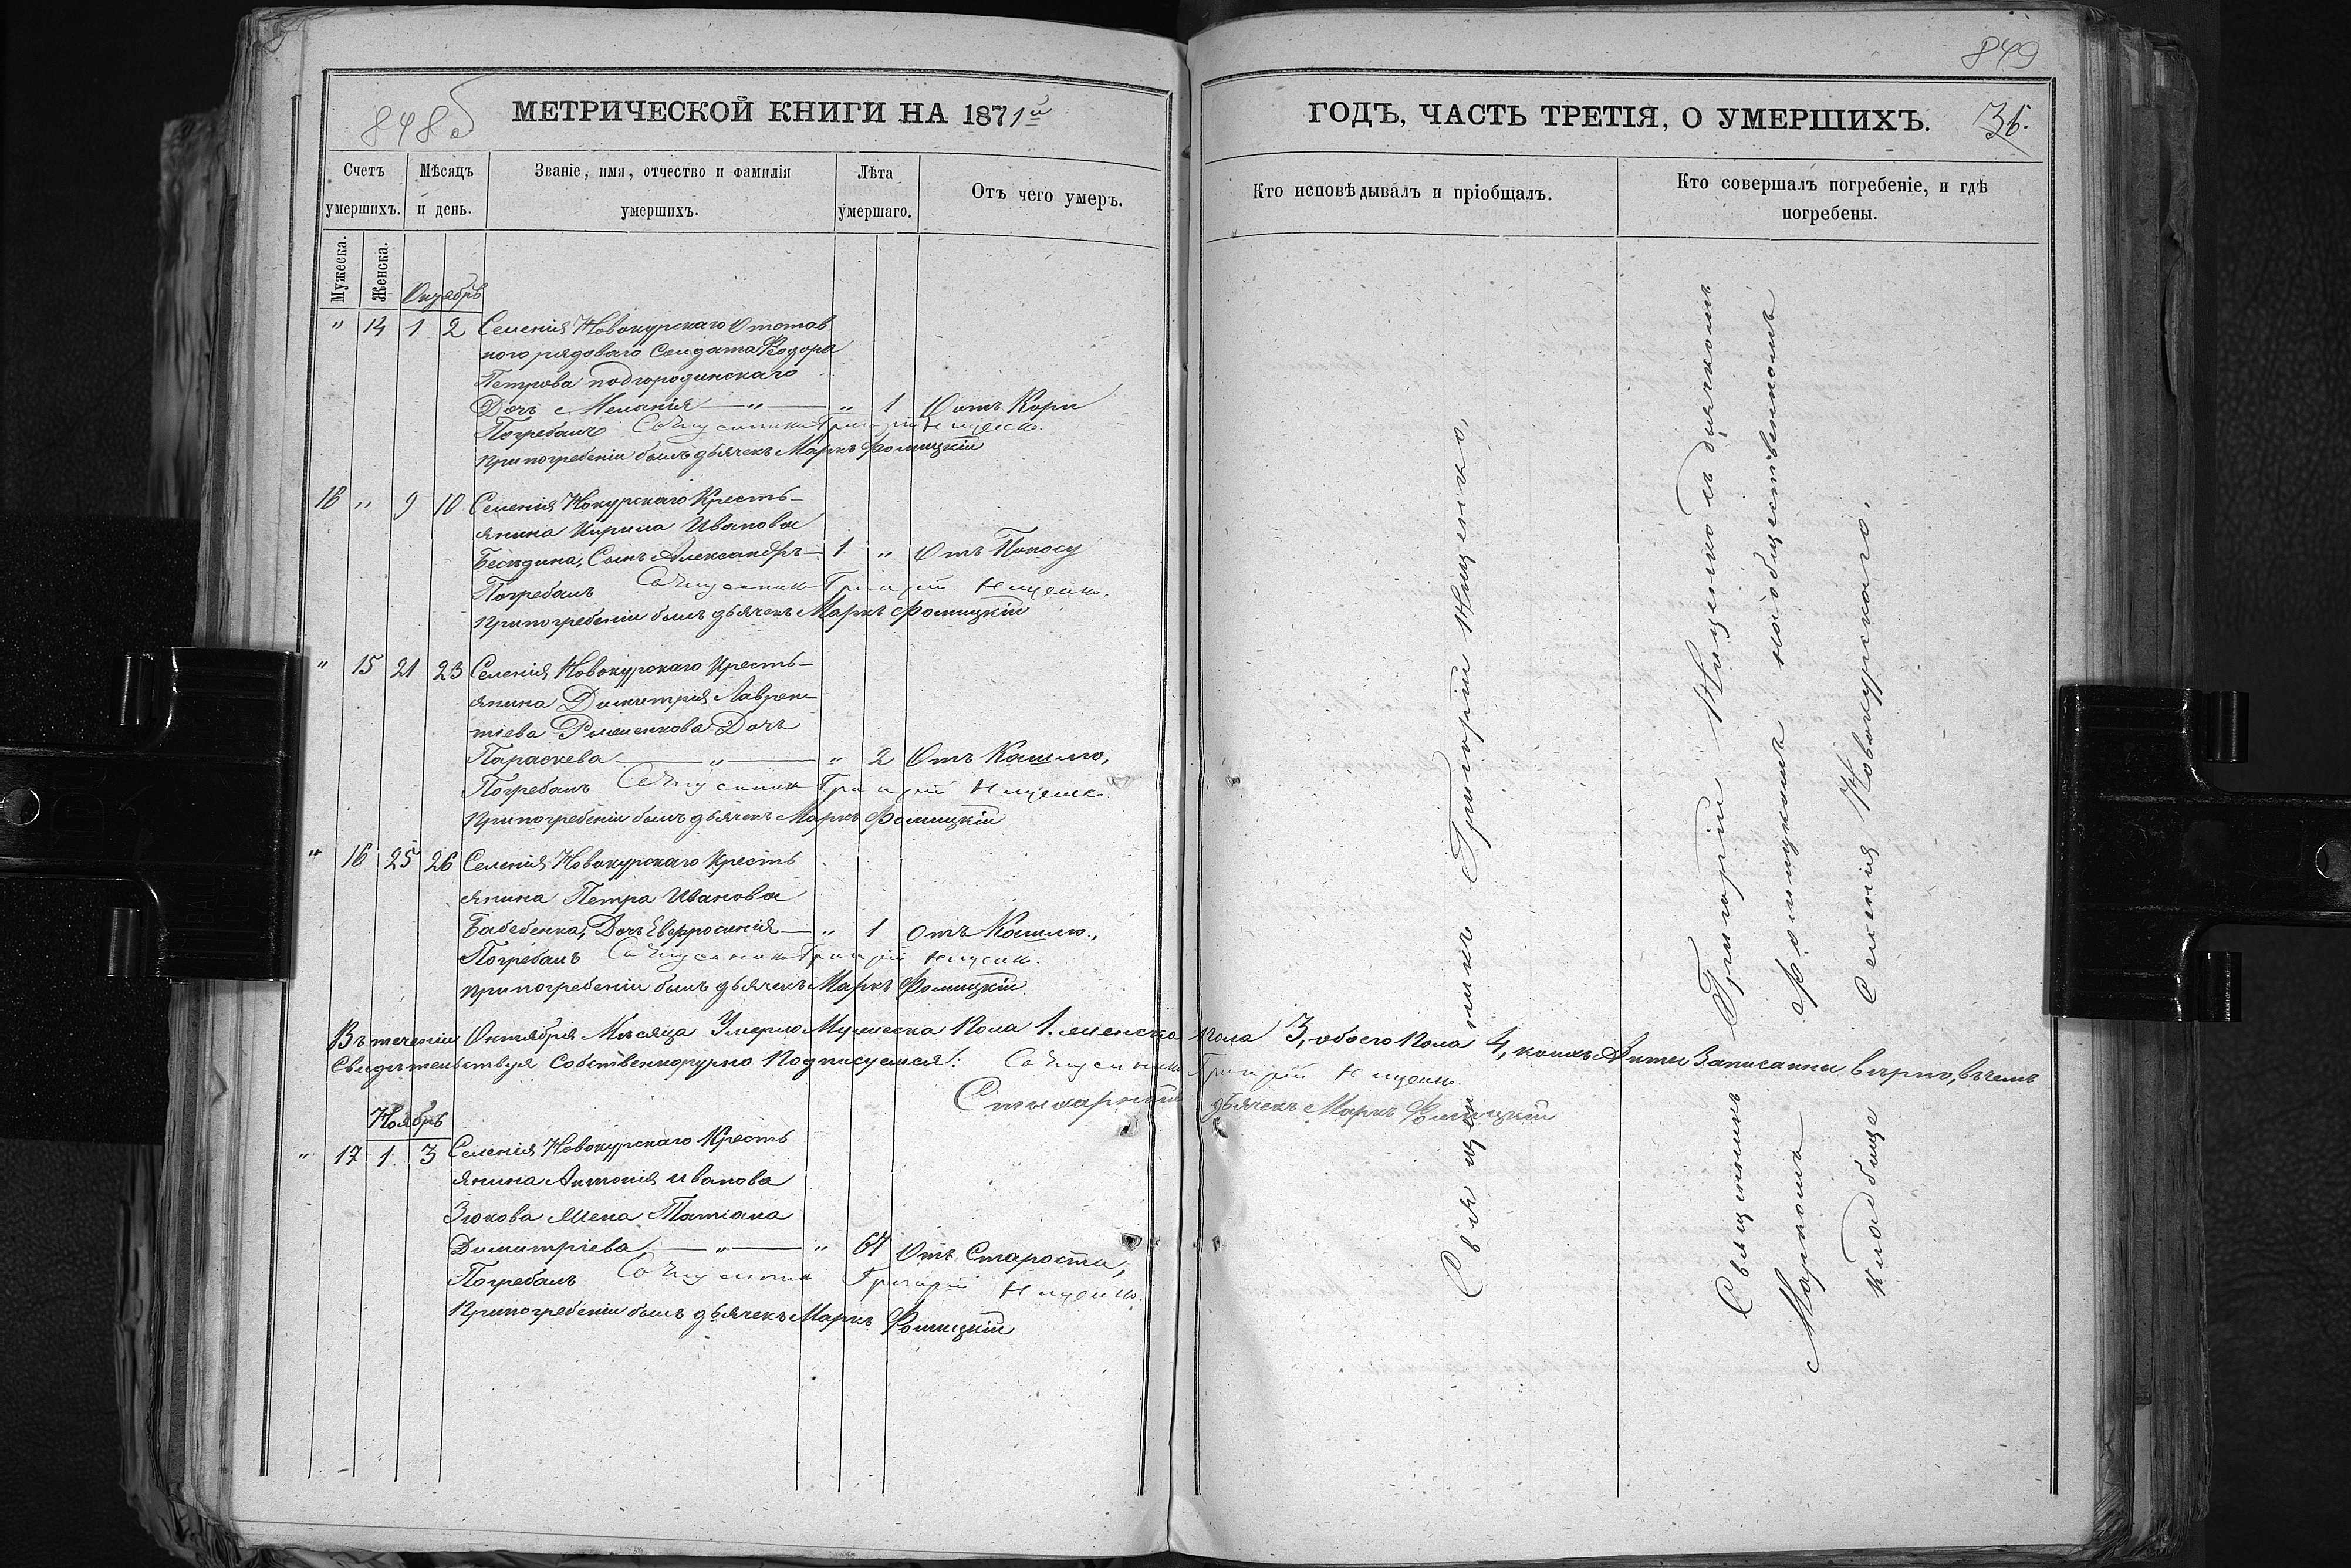 848об
МЕТРИЧЕСКОЙ КНИГИ НА 1871й
Счетъ умершихъ.
Мѣсяцъ и день.
Званіе, имя, отчество и фамилія умершихъ.
Лѣта умершаго.
Отъ чего умеръ.
Мужеска.
Женска.
Октябрь
" 14 1 2 Селенія Новокурскаго Отстав
ного рядоваго Солдата Ѳеодора
Петрова подгородинскаго
Дочь Меланія — " — " 1 Отъ Кори
Погребалъ Священникъ Григорій Нищенко.
При погребеніи былъ дьячекъ Маркъ Фомицкій
16 " 9 10 Селенія Нокурскаго Кресть-
янина Кирила Иванова
Бесѣдина, Сынъ Александръ — 1 " Отъ Поносу
Погребалъ Священникъ Григорій Нищенко.
При погребеніи былъ дьячекъ Маркъ Фомицкій
" 15 21 23 Селенія Новокурскаго Кресть-
янина Димитрія Лаврен-
тіева Дочь
Параскева — " — " 2 Отъ Кашлю,
Погребалъ Священникъ Григорій Нищенко.
При погребеніи былъ дьячекъ Маркъ Фомицкій
" 16 25 26 Селенія Новокурскаго Кресть
янина Петра Иванова
Бабебенка, Дочь Евфросинія — " 1 отъ Кашлю.,
Погребалъ Священникъ Григорій Нищенко.
При погребеніи былъ дьячекъ Маркъ Фомицкій.
Въ теченіи Октября Мѣсяца Умерло Мужеска Пола 1. женска Пола 3, обоего Пола 4, коихъ Акты Записанны вѣрно, въ чемъ
Свидѣтельствуя Собственноручно Подписуемся: Священникъ Григорій Нищенко.
Стихарный дьячекъ Маркъ Фомицкій
Ноябрь
" 17 1. 3 Селенія Новокурскаго Кресть
янина Антонія иванова
Зюкова Жена Татіана
Димитріева, — " — " 64 Отъ Старости,
Погребалъ Священникъ Григорій Нищенко.
При погребеніи былъ дьячекъ Маркъ Фомицкій
849
ГОДЪ, ЧАСТЬ ТРЕТІЯ, О УМЕРШИХЪ.
36.
Кто исповѣдывалъ и пріобщалъ.
Кто совершалъ погребеніе, и гдѣ погребены.
Священникъ Григорій Нищенко,
Священникъ Григорій Нищенко съ дьячкомъ
Маркомъ Фомицкимъ на общественномъ
кладбище Селенія Новокурскаго.